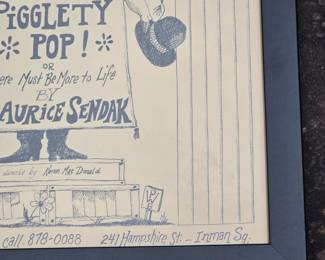 PIGGLETY
POP!
OR
ere Must Be More to Life
BY
AURICE SENDAK
directed by Karen MacDonald
call 878-0088 241 Hampshire St. – Inman Sq.